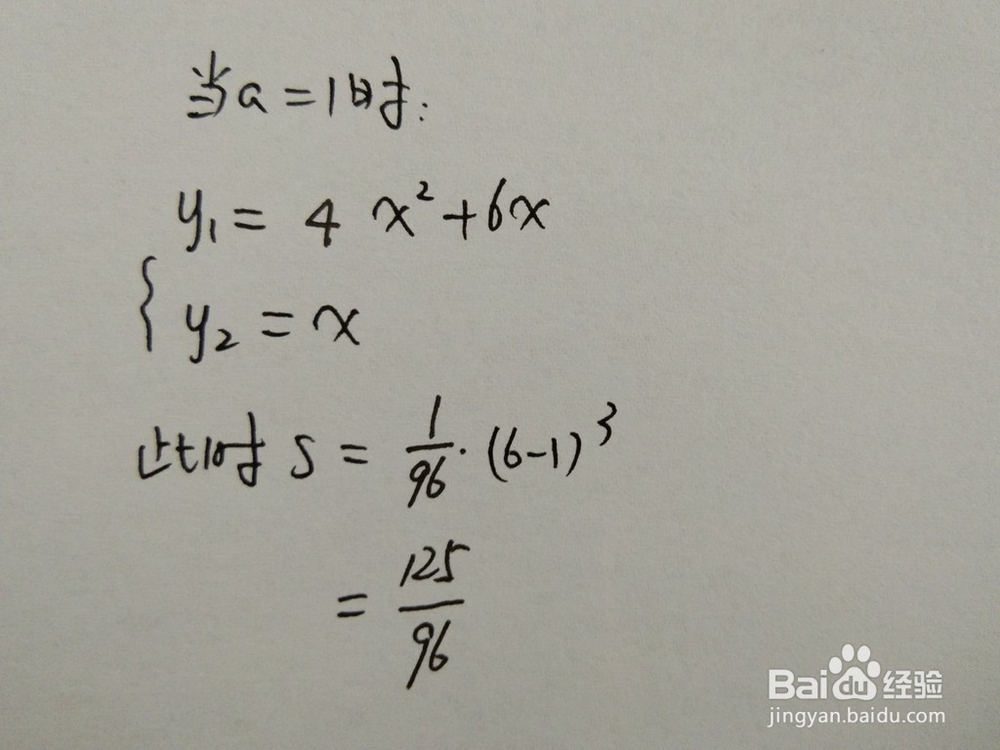 当a=1时:
y₁ = 4 x²+6x
{ y₂ = x
此时 S = 1/96 · (6-1)³
= 125/96
Baidu 经验
jingyan.baidu.com